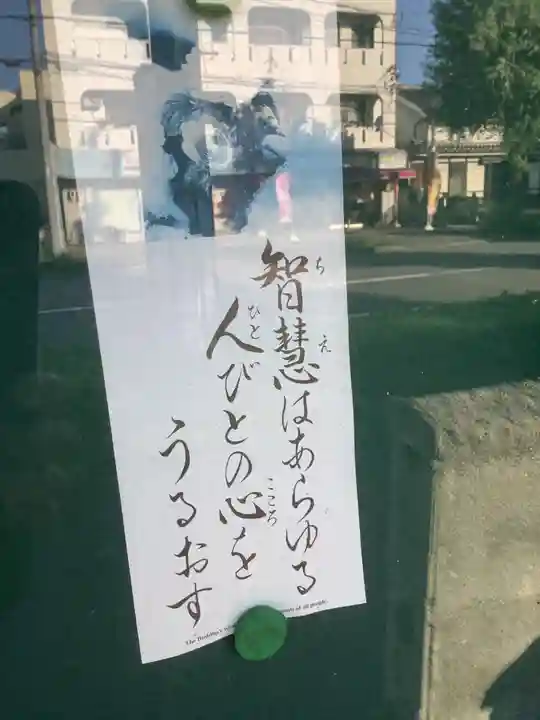 智慧はあらゆる
ちえ
人びとの心を
ひと こころ
うるおす
The Buddha's of all people.